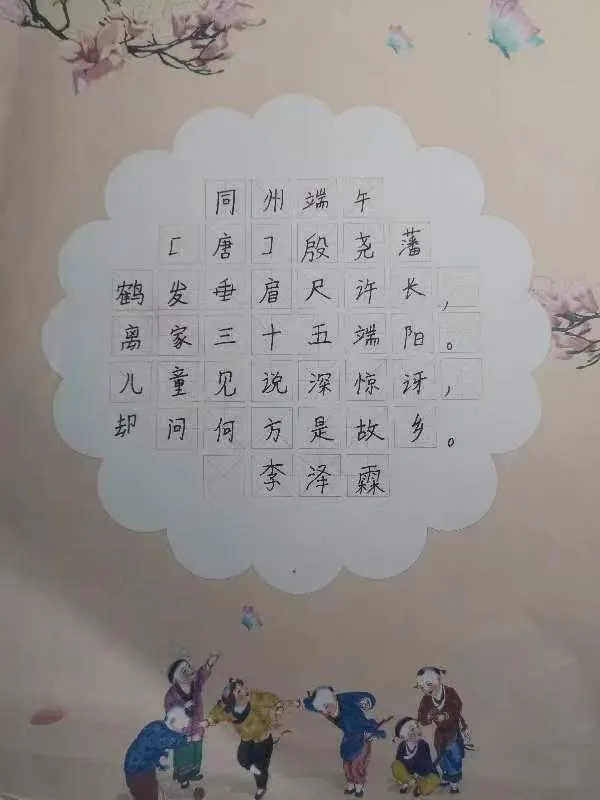 同州端午
[唐]殷尧藩
鹤发垂眉尺许长，
离家三十五端阳。
儿童见说深惊讶，
却问何方是故乡。
李泽霖